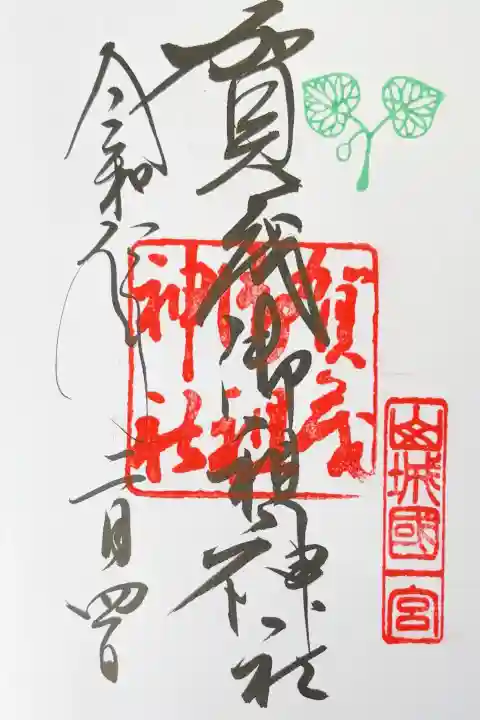 山城國一宮
賀茂御祖神社
賀茂御祖神社
令和 年二月四日